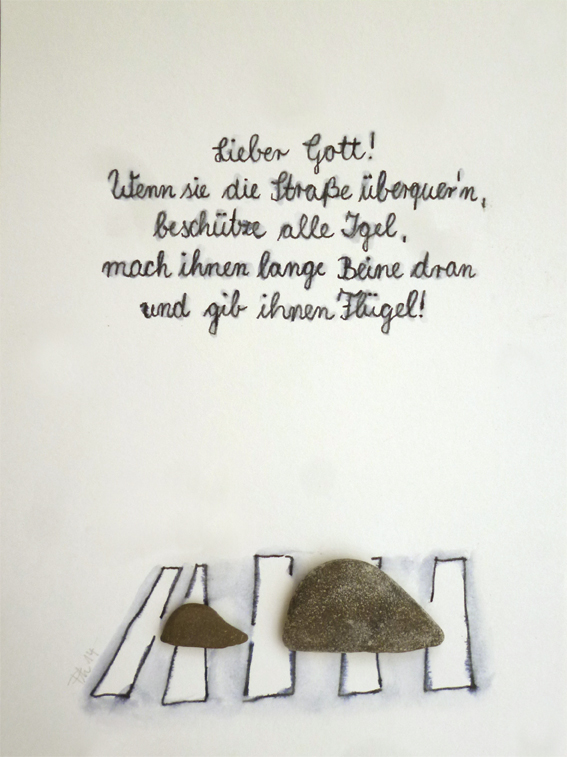 Lieber Gott!
Wenn sie die Straße überquer'n,
beschütze alle Igel,
mach ihnen lange Beine dran
und gib ihnen Flügel!